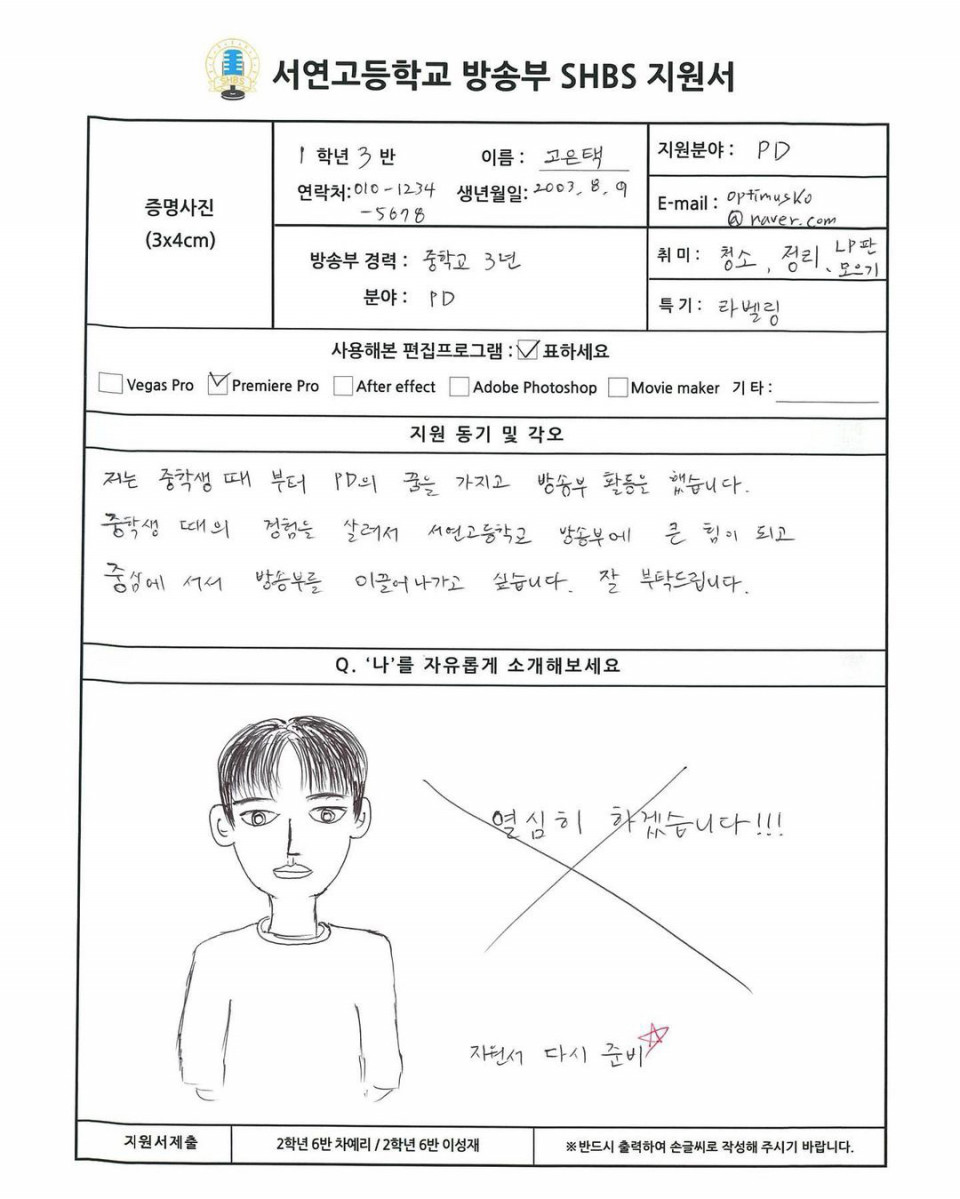 SHBS
서연고등학교 방송부 SHBS 지원서
증명사진
(3x4cm)
1 학년 3 반 이름 : 고은택
연락처: 010-1234
-5678
생년월일: 2003. 8. 9
지원분야 : PD
E-mail : optimusko
@naver.com
방송부 경력 : 중학교 3년
분야 : PD
취 미 : 청소, 정리, LP판
모으기
특 기 : 라벨링
사용해본 편집프로그램 : 표하세요
Vegas Pro Premiere Pro After effect Adobe Photoshop Movie maker 기 타 :
지원 동기 및 각오
저는 중학생 때 부터 PD의 꿈을 가지고 방송부 활동을 했습니다.
중학생 때의 경험을 살려서 서연고등학교 방송부에 큰 힘이 되고
중심에 서서 방송부를 이끌어나가고 싶습니다. 잘 부탁드립니다.
Q. ‘나’를 자유롭게 소개해보세요
열심히 하겠습니다!!!
지원서 다시 준비
지원서제출 2학년 6반 차예리 / 2학년 6반 이성재 ※반드시 출력하여 손글씨로 작성해 주시기 바랍니다.